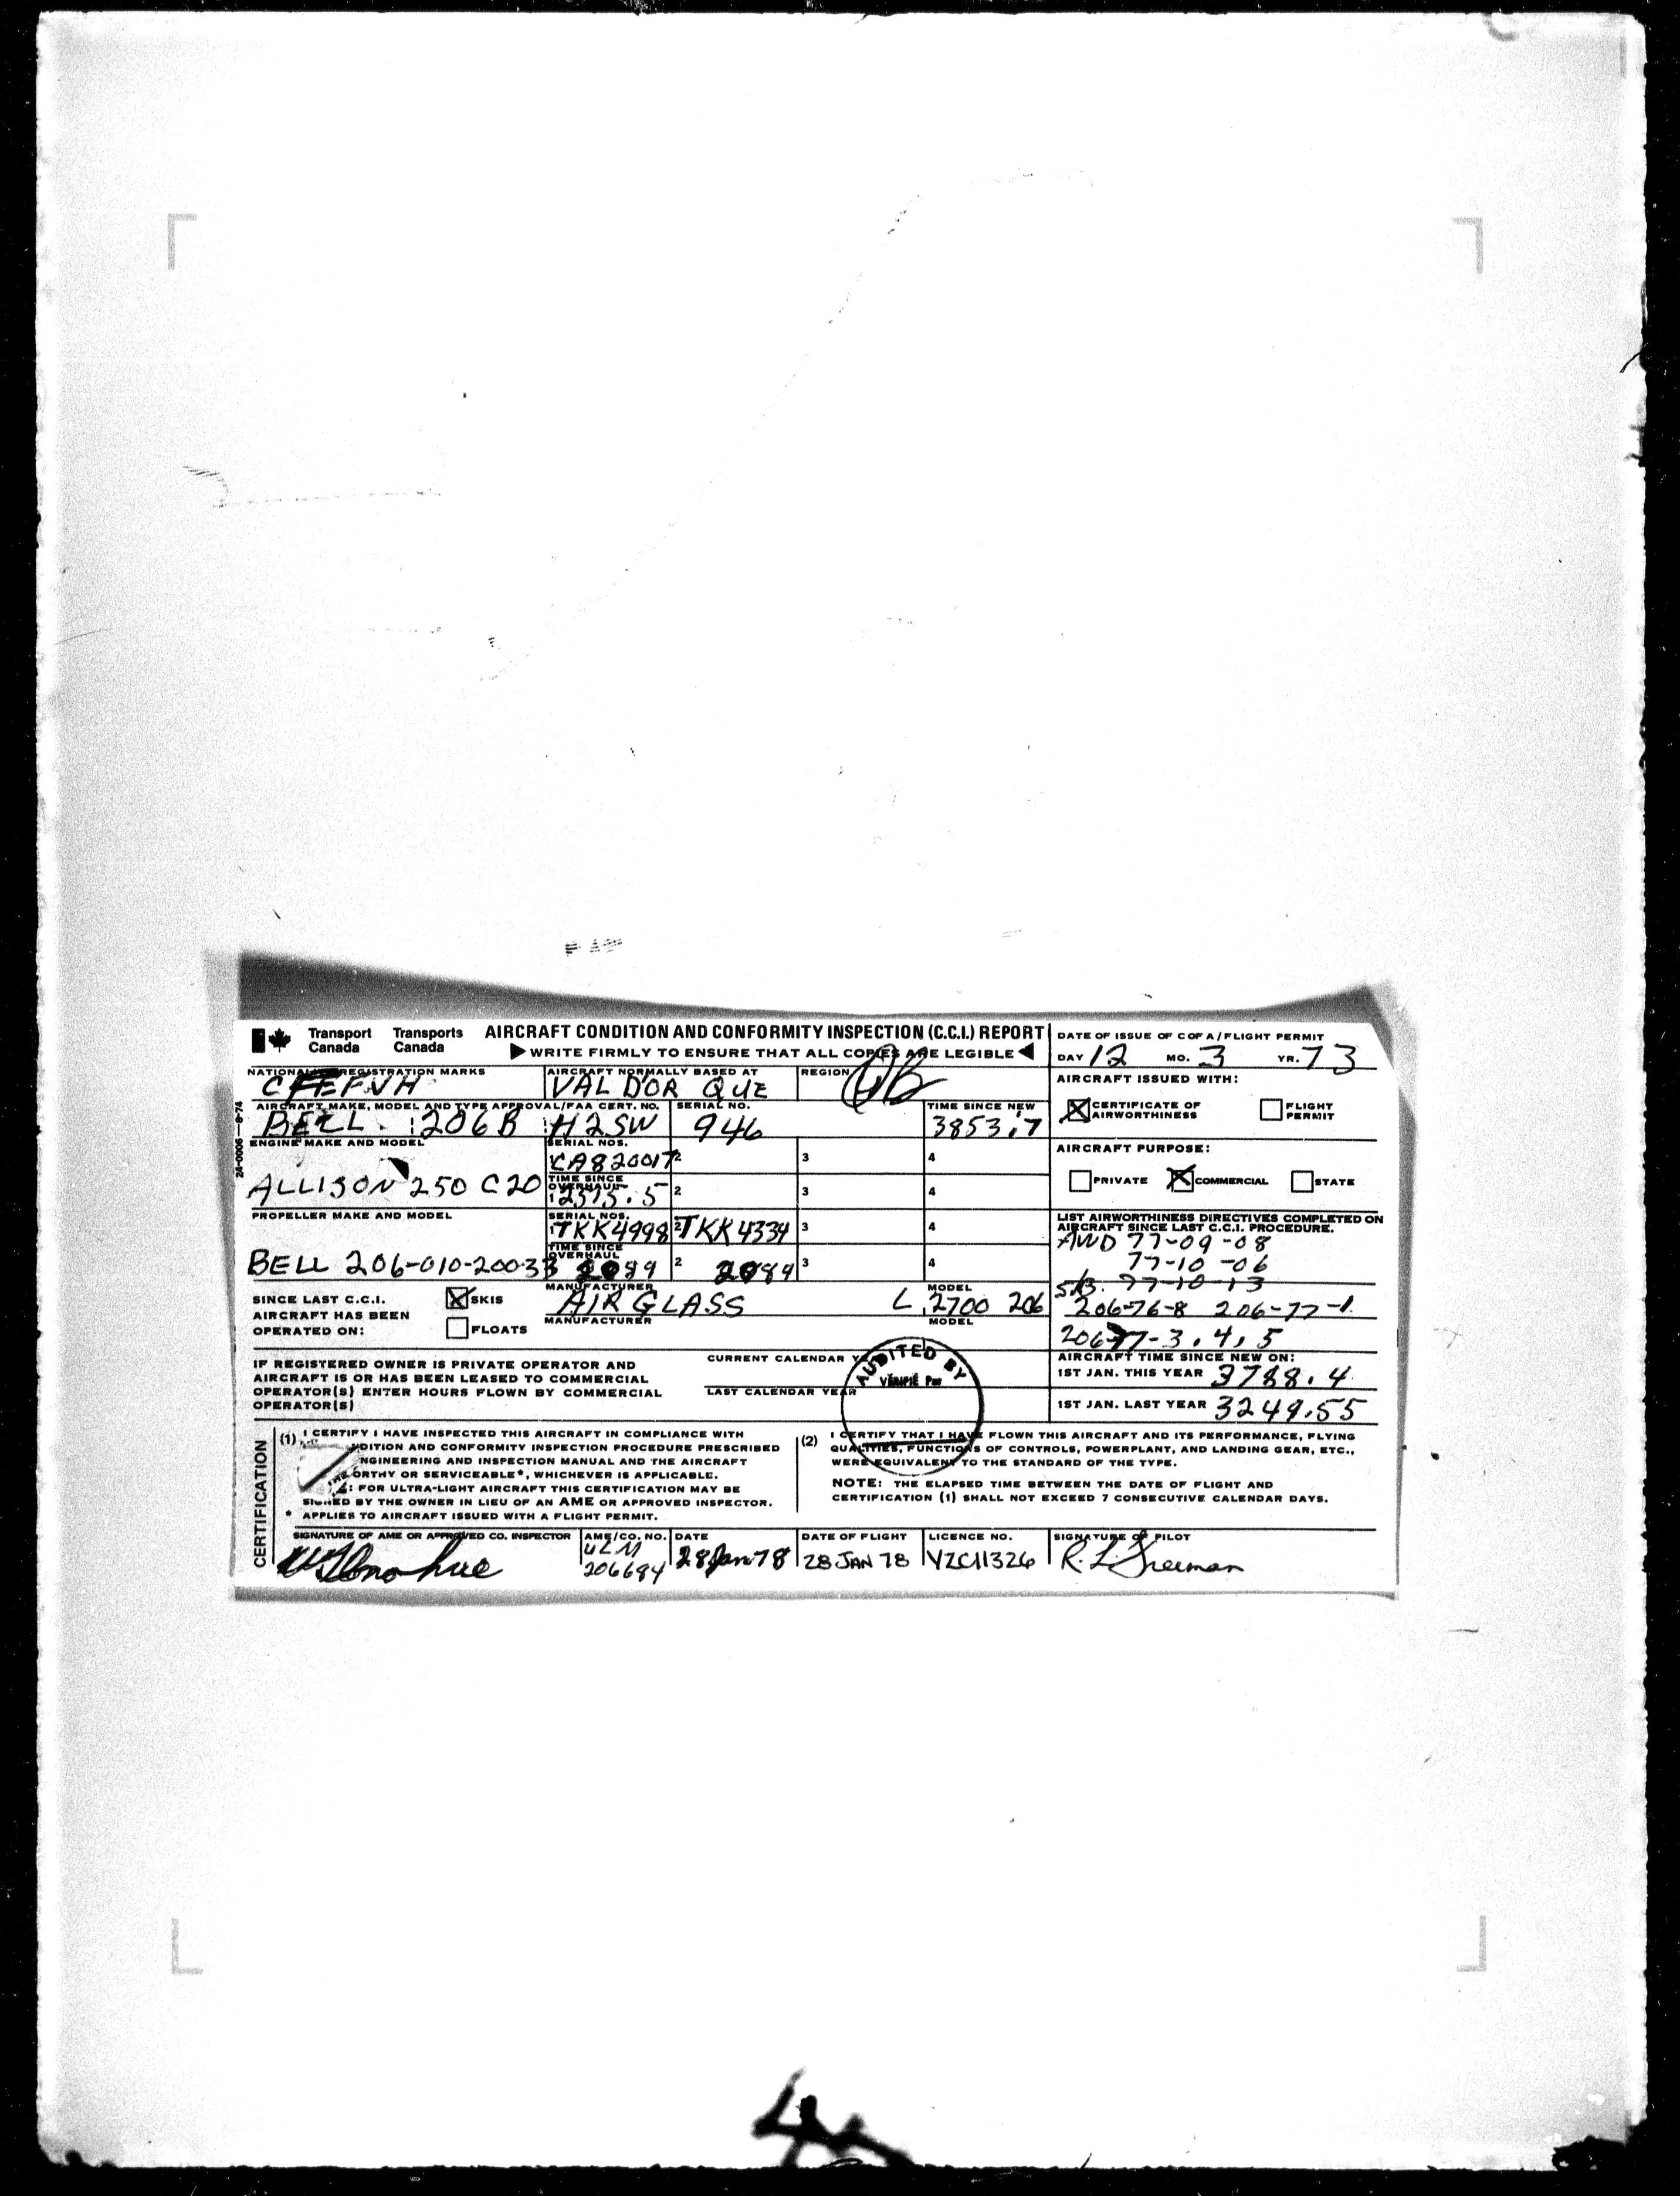 Transport Canada Transports Canada
AIRCRAFT CONDITION AND CONFORMITY INSPECTION (C.C.I.) REPORT
▶ WRITE FIRMLY TO ENSURE THAT ALL COPIES ARE LEGIBLE ◀
DATE OF ISSUE OF C OF A/FLIGHT PERMIT
DAY 12 MO. 3 YR. 73
NATIONAL REGISTRATION MARKS
AIRCRAFT NORMALLY BASED AT
VAL D'OR QUE
REGION
AIRCRAFT ISSUED WITH:
CERTIFICATE OF AIRWORTHINESS
FLIGHT PERMIT
24-0006 8-74
AIRCRAFT MAKE, MODEL AND TYPE APPROVAL/FAA CERT. NO.
BELL 206B H2SW
SERIAL NO.
946
TIME SINCE NEW
3853.7
ENGINE MAKE AND MODEL
ALLISON 250 C20
SERIAL NOS.
CA820017 2 3 4
TIME SINCE OVERHAUL
2575.5 2 3 4
AIRCRAFT PURPOSE:
PRIVATE COMMERCIAL STATE
PROPELLER MAKE AND MODEL
BELL 206-010-200-33
SERIAL NOS.
TKK4998 2 TKK4334 3 4
TIME SINCE OVERHAUL
2089 2 2084 3 4
LIST AIRWORTHINESS DIRECTIVES COMPLETED ON
AIRCRAFT SINCE LAST C.C.I. PROCEDURE.
AWD 77-09-08
77-10-06
77-10-13
206-76-8 206-77-1
206-77-3, 4, 5
SINCE LAST C.C.I.
AIRCRAFT HAS BEEN
OPERATED ON:
SKIS
FLOATS
MANUFACTURER
AIR GLASS
MODEL
L 2700 206
MANUFACTURER
MODEL
IF REGISTERED OWNER IS PRIVATE OPERATOR AND
AIRCRAFT IS OR HAS BEEN LEASED TO COMMERCIAL
OPERATOR(S) ENTER HOURS FLOWN BY COMMERCIAL
OPERATOR(S)
CURRENT CALENDAR
LAST CALENDAR YEAR
AUDITED BY
VÉRIFIÉ Par
AIRCRAFT TIME SINCE NEW ON:
1ST JAN. THIS YEAR 3788.4
1ST JAN. LAST YEAR 3249.55
CERTIFICATION
(1) I CERTIFY I HAVE INSPECTED THIS AIRCRAFT IN COMPLIANCE WITH
AND CONFORMITY INSPECTION PROCEDURE PRESCRIBED
AND INSPECTION MANUAL AND THE AIRCRAFT
OR SERVICEABLE*, WHICHEVER IS APPLICABLE.
FOR ULTRA-LIGHT AIRCRAFT THIS CERTIFICATION MAY BE
SIGNED BY THE OWNER IN LIEU OF AN AME OR APPROVED INSPECTOR.
* APPLIES TO AIRCRAFT ISSUED WITH A FLIGHT PERMIT.
(2) I CERTIFY THAT I HAVE FLOWN THIS AIRCRAFT AND ITS PERFORMANCE, FLYING
QUALITIES, FUNCTIONS OF CONTROLS, POWERPLANT, AND LANDING GEAR, ETC.,
WERE EQUIVALENT TO THE STANDARD OF THE TYPE.
NOTE: THE ELAPSED TIME BETWEEN THE DATE OF FLIGHT AND
CERTIFICATION (1) SHALL NOT EXCEED 7 CONSECUTIVE CALENDAR DAYS.
SIGNATURE OF AME OR APPROVED CO. INSPECTOR
AME/CO. NO.
ULM
206684
DATE
28 Jan 78
DATE OF FLIGHT
28 JAN 78
LICENCE NO.
YZC11326
SIGNATURE OF PILOT
R. L. Freeman